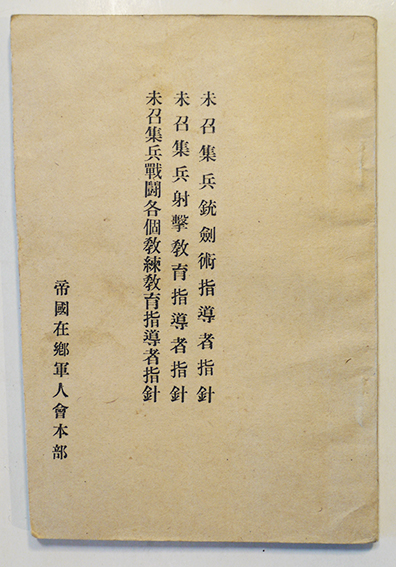 未召集兵銃劍術指導者指針
未召集兵射擊敎育指導者指針
未召集兵戰鬪各個敎練敎育指導者指針
帝國在鄕軍人會本部